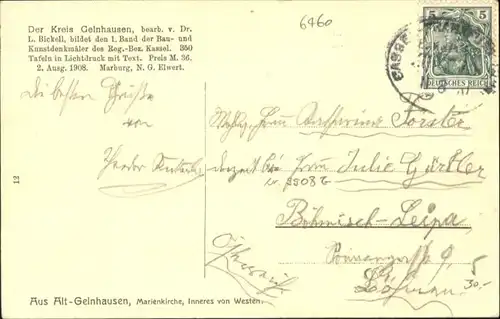 Der Kreis Gelnhausen, bearb. v. Dr.
L. Bickell, bildet den 1. Band der Bau- und
Kunstdenkmäler des Reg.-Bez. Kassel. 350
Tafeln in Lichtdruck mit Text. Preis M. 36.
2. Ausg. 1908. Marburg, N. G. Elwert.
6460
5 5
DEUTSCHES REICH
Die besten Grüße
von
Frau Forster
derzeit bei Frau Julie Gärtler
Böhmisch-Leipa
9
Böhmen
Österreich
5
30.-
12
Aus Alt-Gelnhausen, Marienkirche, Inneres von Westen.